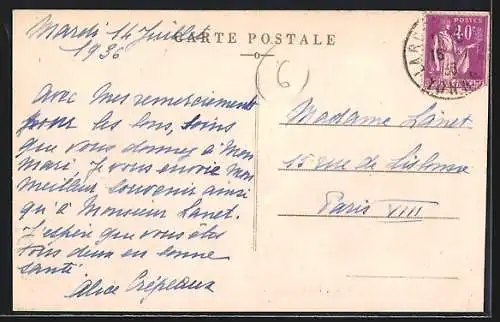 Mardi 14 Juillet
1936
CARTE POSTALE
POSTES
40c
(6)
Avec mes remerciements
pour les bons soins
que vous donnez à Mon
Mari. Je vous envoie mon
meilleur souvenir ainsi
qu'à Monsieur Lanet.
J'espère que vous êtes
tous deux en bonne
santé
Alice Crépeaux
Madame Lanet
15 rue de Lisbonne
Paris VIII